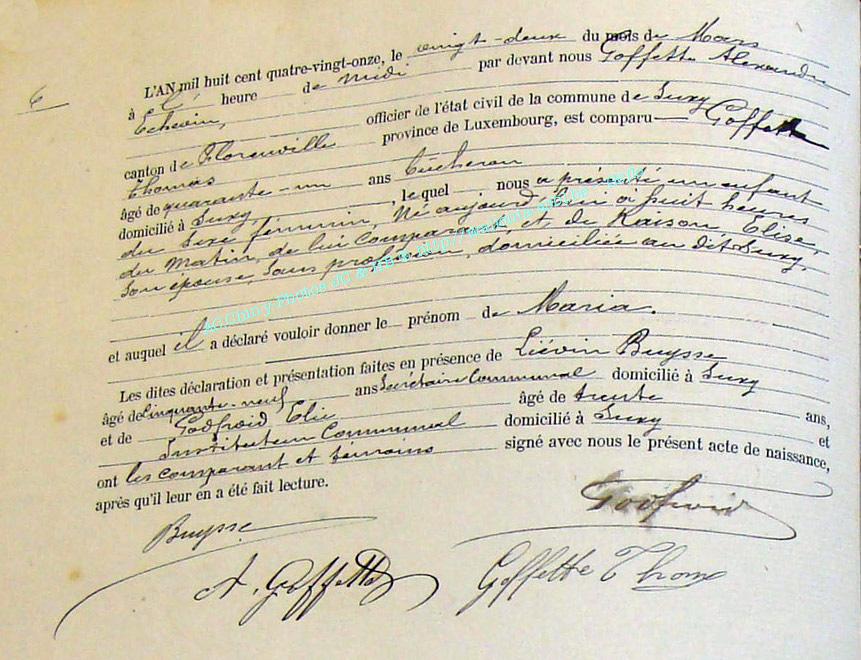 6
L'AN mil huit cent quatre-vingt-onze, le vingt-deux du mois de Mars
à l' heure de midi par devant nous Goffette Alexandre
Echevin, officier de l'état civil de la commune de Suxy
canton de Florenville province de Luxembourg, est comparu Goffette
Thomas
âgé de quarante-un ans bûcheron
domicilié à Suxy, lequel nous a présenté un enfant
du sexe féminin, né aujourd'hui à huit heures
du matin, de lui comparant, et de Raison, Elise,
son épouse, sans profession, domiciliée au dit Suxy,
et auquel il a déclaré vouloir donner le prénom de Maria.
Les dites déclaration et présentation faites en présence de Liévin Buysse
âgé de cinquante-neuf ans Secrétaire Communal domicilié à Suxy
et de Godfroid Elie âgé de trente ans,
Instituteur Communal domicilié à Suxy et
ont les comparant et témoins signé avec nous le présent acte de naissance,
après qu'il leur en a été fait lecture.
Godfroid
Buysse
A. Goffette
Goffette Thomas